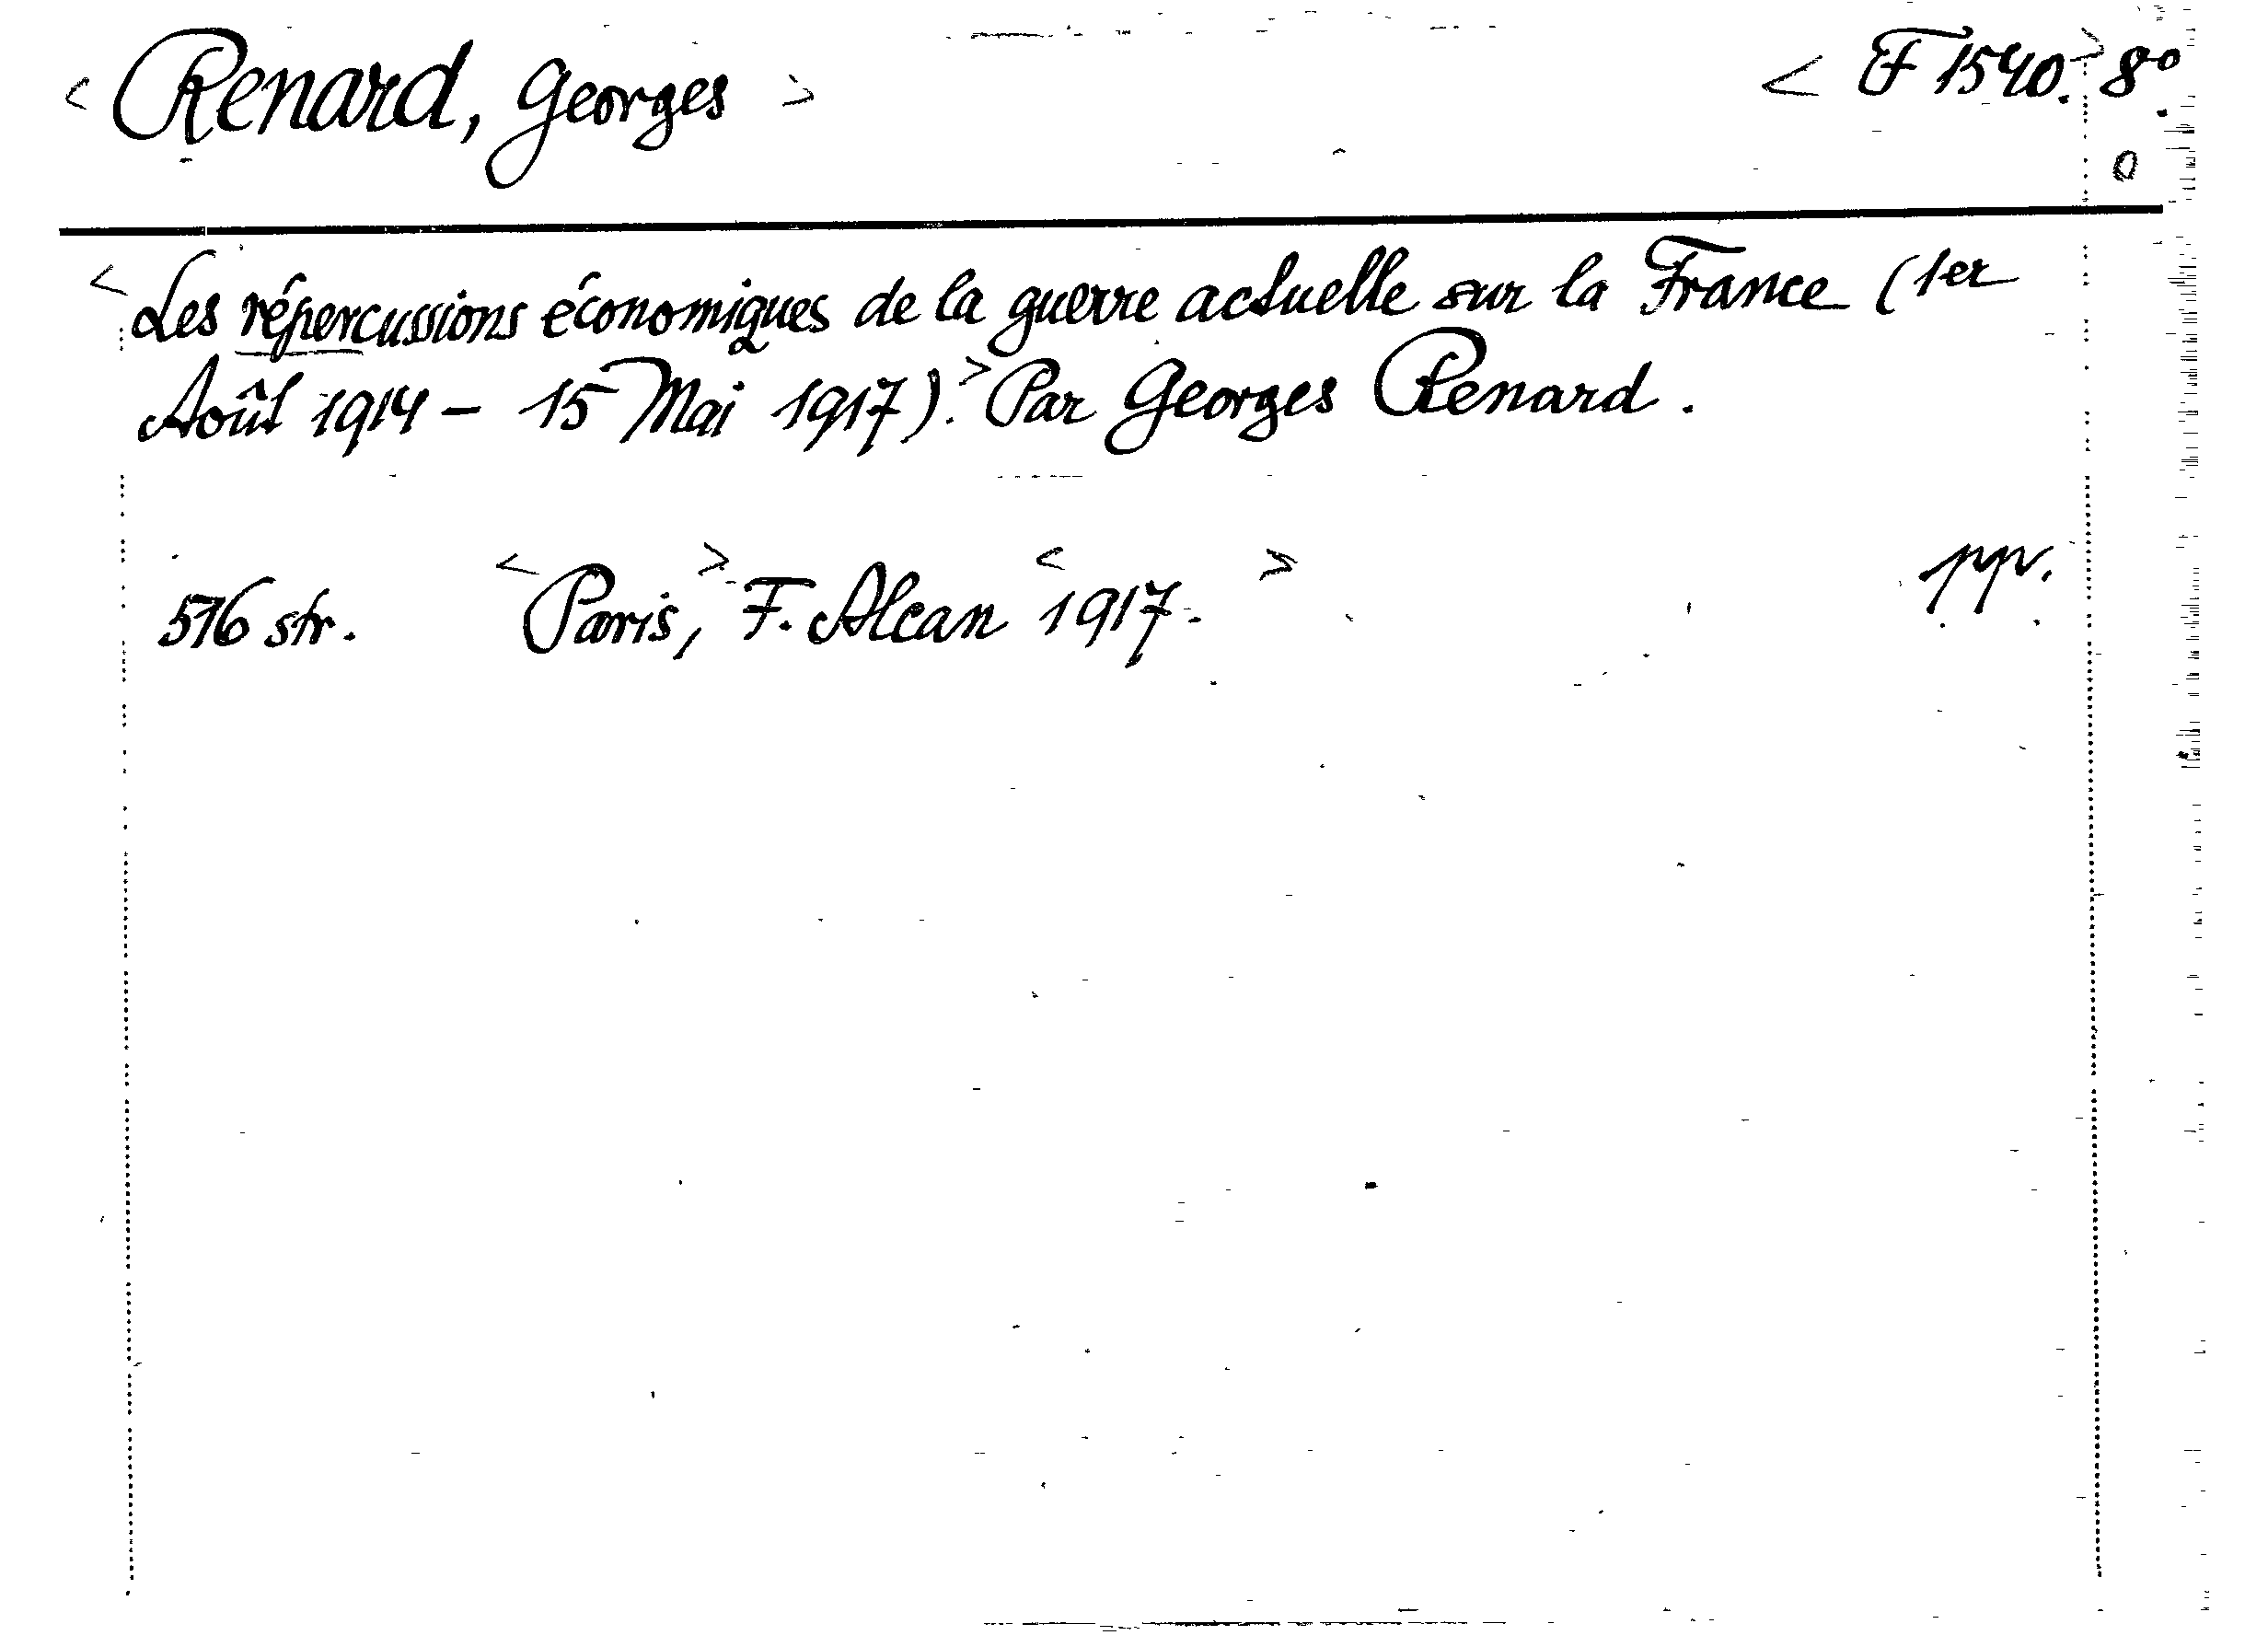 < Renard, Georges > < F 1540. > 8°.
0
< Les répercussions économiques de la guerre actuelle sur la France (1er
Août 1914 – 15 Mai 1917).> Par Georges Renard.
516 str. < Paris, > F. Alcan < 1917. >